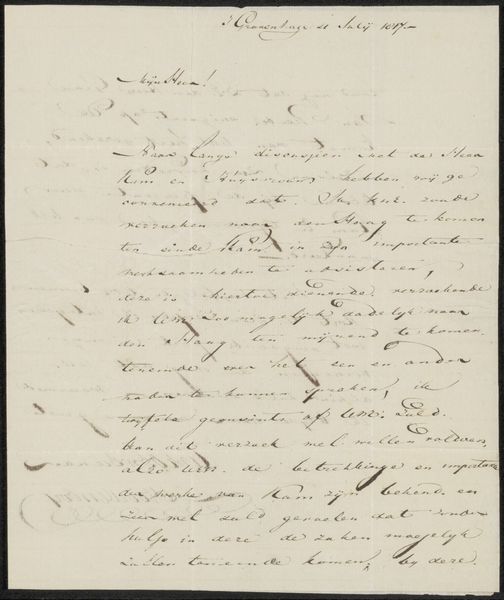 's Gravenhage 21 Julij 1817.
Mijn Heer!
Naar lange discussien met de Heer
Kam en hebben wij ge
convenieerd dat zoude
verzoeken naar den Haag te komen
ten einde Kam, in zijn importante
werkzaamheden te adsisteren,
deze is hiertoe dienende, verzoekende
ik UEd. zoo mogelijk dadelijk naar
den Haag ten mijnend te komen
teneinde over het een en ander
nader te kunnen spreken, ik
twyfele geenzints of UEd. zuld
aan dit verzoek wel willen voldoen,
alzo UEd. de betrekkinge en importantie
der werke van Kam zijn bekend, en
zeer wel zuld gevoelen dat zonder
hulp in deze de zaken moejelyk
zullen teneinde komen, by deze